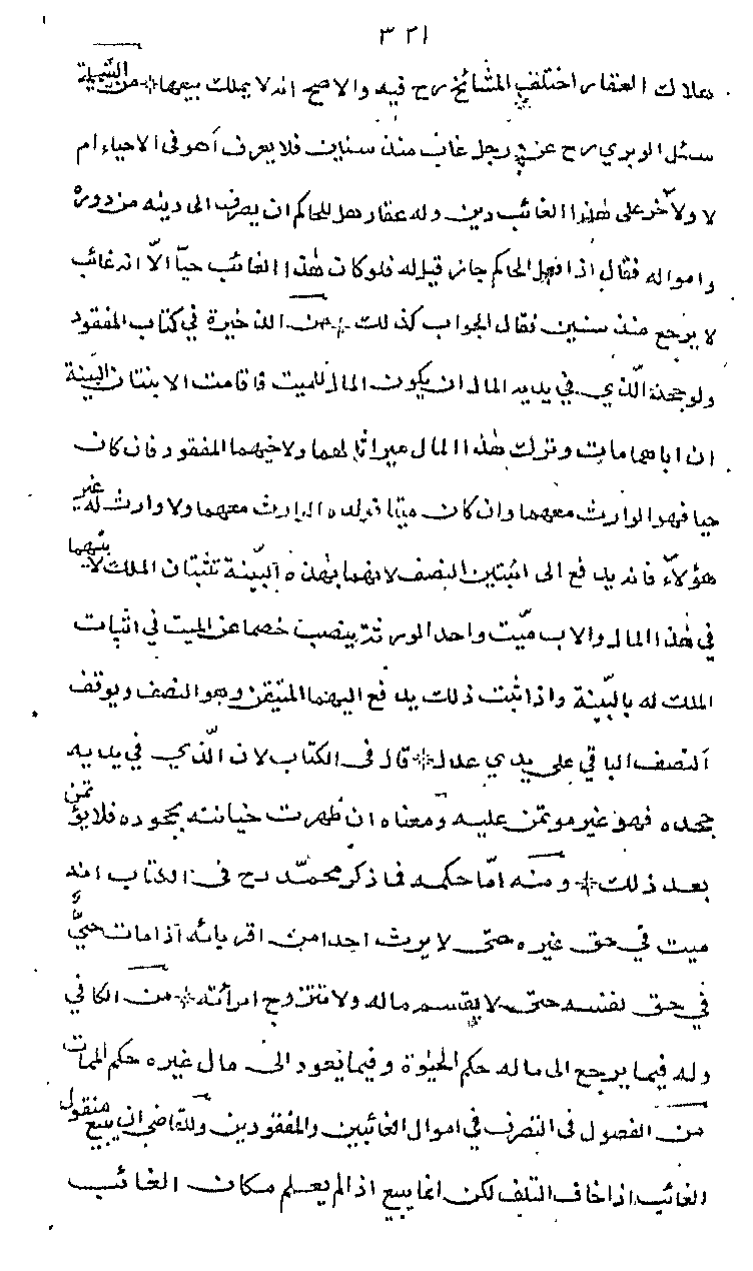 ٣٢١
هلاك العقار اختلف المشائخ رح فيه والاصح انه لا يملك بيعها * من اليتيمة
سئل الوبري رح عن رجل غاب منذ سنين فلا يعرف أهو فى الاحياء ام
لا ولآخر على هٰذا الغائب دين وله عقار هل للحاكم ان يصرف الى دينه من دوره
وامواله فقال اذا فعل الحاكم جاز قيل له فلو كان هٰذا الغائب حيّا الّا انه غائب
لا يرجع منذ سنين فقال الجواب كذلك * من الذخيرة في كتاب المفقود
ولو جحد الّذي في يديه المال ان يكون المال للميت فاقامت الابنتان البيّنة
ان اباهما مات وترك هٰذا المال ميراثا لهما ولاخيهما المفقود فان كان
حيا فهو الوارث معهما وان كان ميتا فولده الوارث معهما ولا وارث له غير
هؤلآء فانه يدفع الى ابنتين النصف لانهما بهٰذه البيّنة تثبتان الملك لابيهما
في هٰذا المال والاب ميّت واحد الورثة ينصب خصما عن الميت في اثبات
الملك له بالبيّنة واذا ثبت ذلك يدفع اليهما المتيقن وهو النصف ويوقف
النصف الباقي على يدي عدل * قال فى الكتاب لان الّذي في يديه
جحده فهو غير مؤتمن عليه ومعناه ان ظهرت خيانته بجحوده فلا يؤتمن
بعد ذلك * ومنه امّا حكمه فما ذكر محمّد رح فى الكتاب انه
ميت في حق غيره حتى لا يورث احدا من اقربائه اذا مات حيّ
في حق نفسه حتى لا يقسم ماله ولا تتزوج امرأته * من الكافي
وله فيما يرجع الى ماله حكم الحيٰوة وفيما يعود الى مال غيره حكم الممات
من الفصول فى التصرف في اموال الغائبين والمفقودين وللقاضى ان يبيع منقول
الغائب اذا خاف التلف لكن انما يبيع اذا لم يعلم مكان الغائب